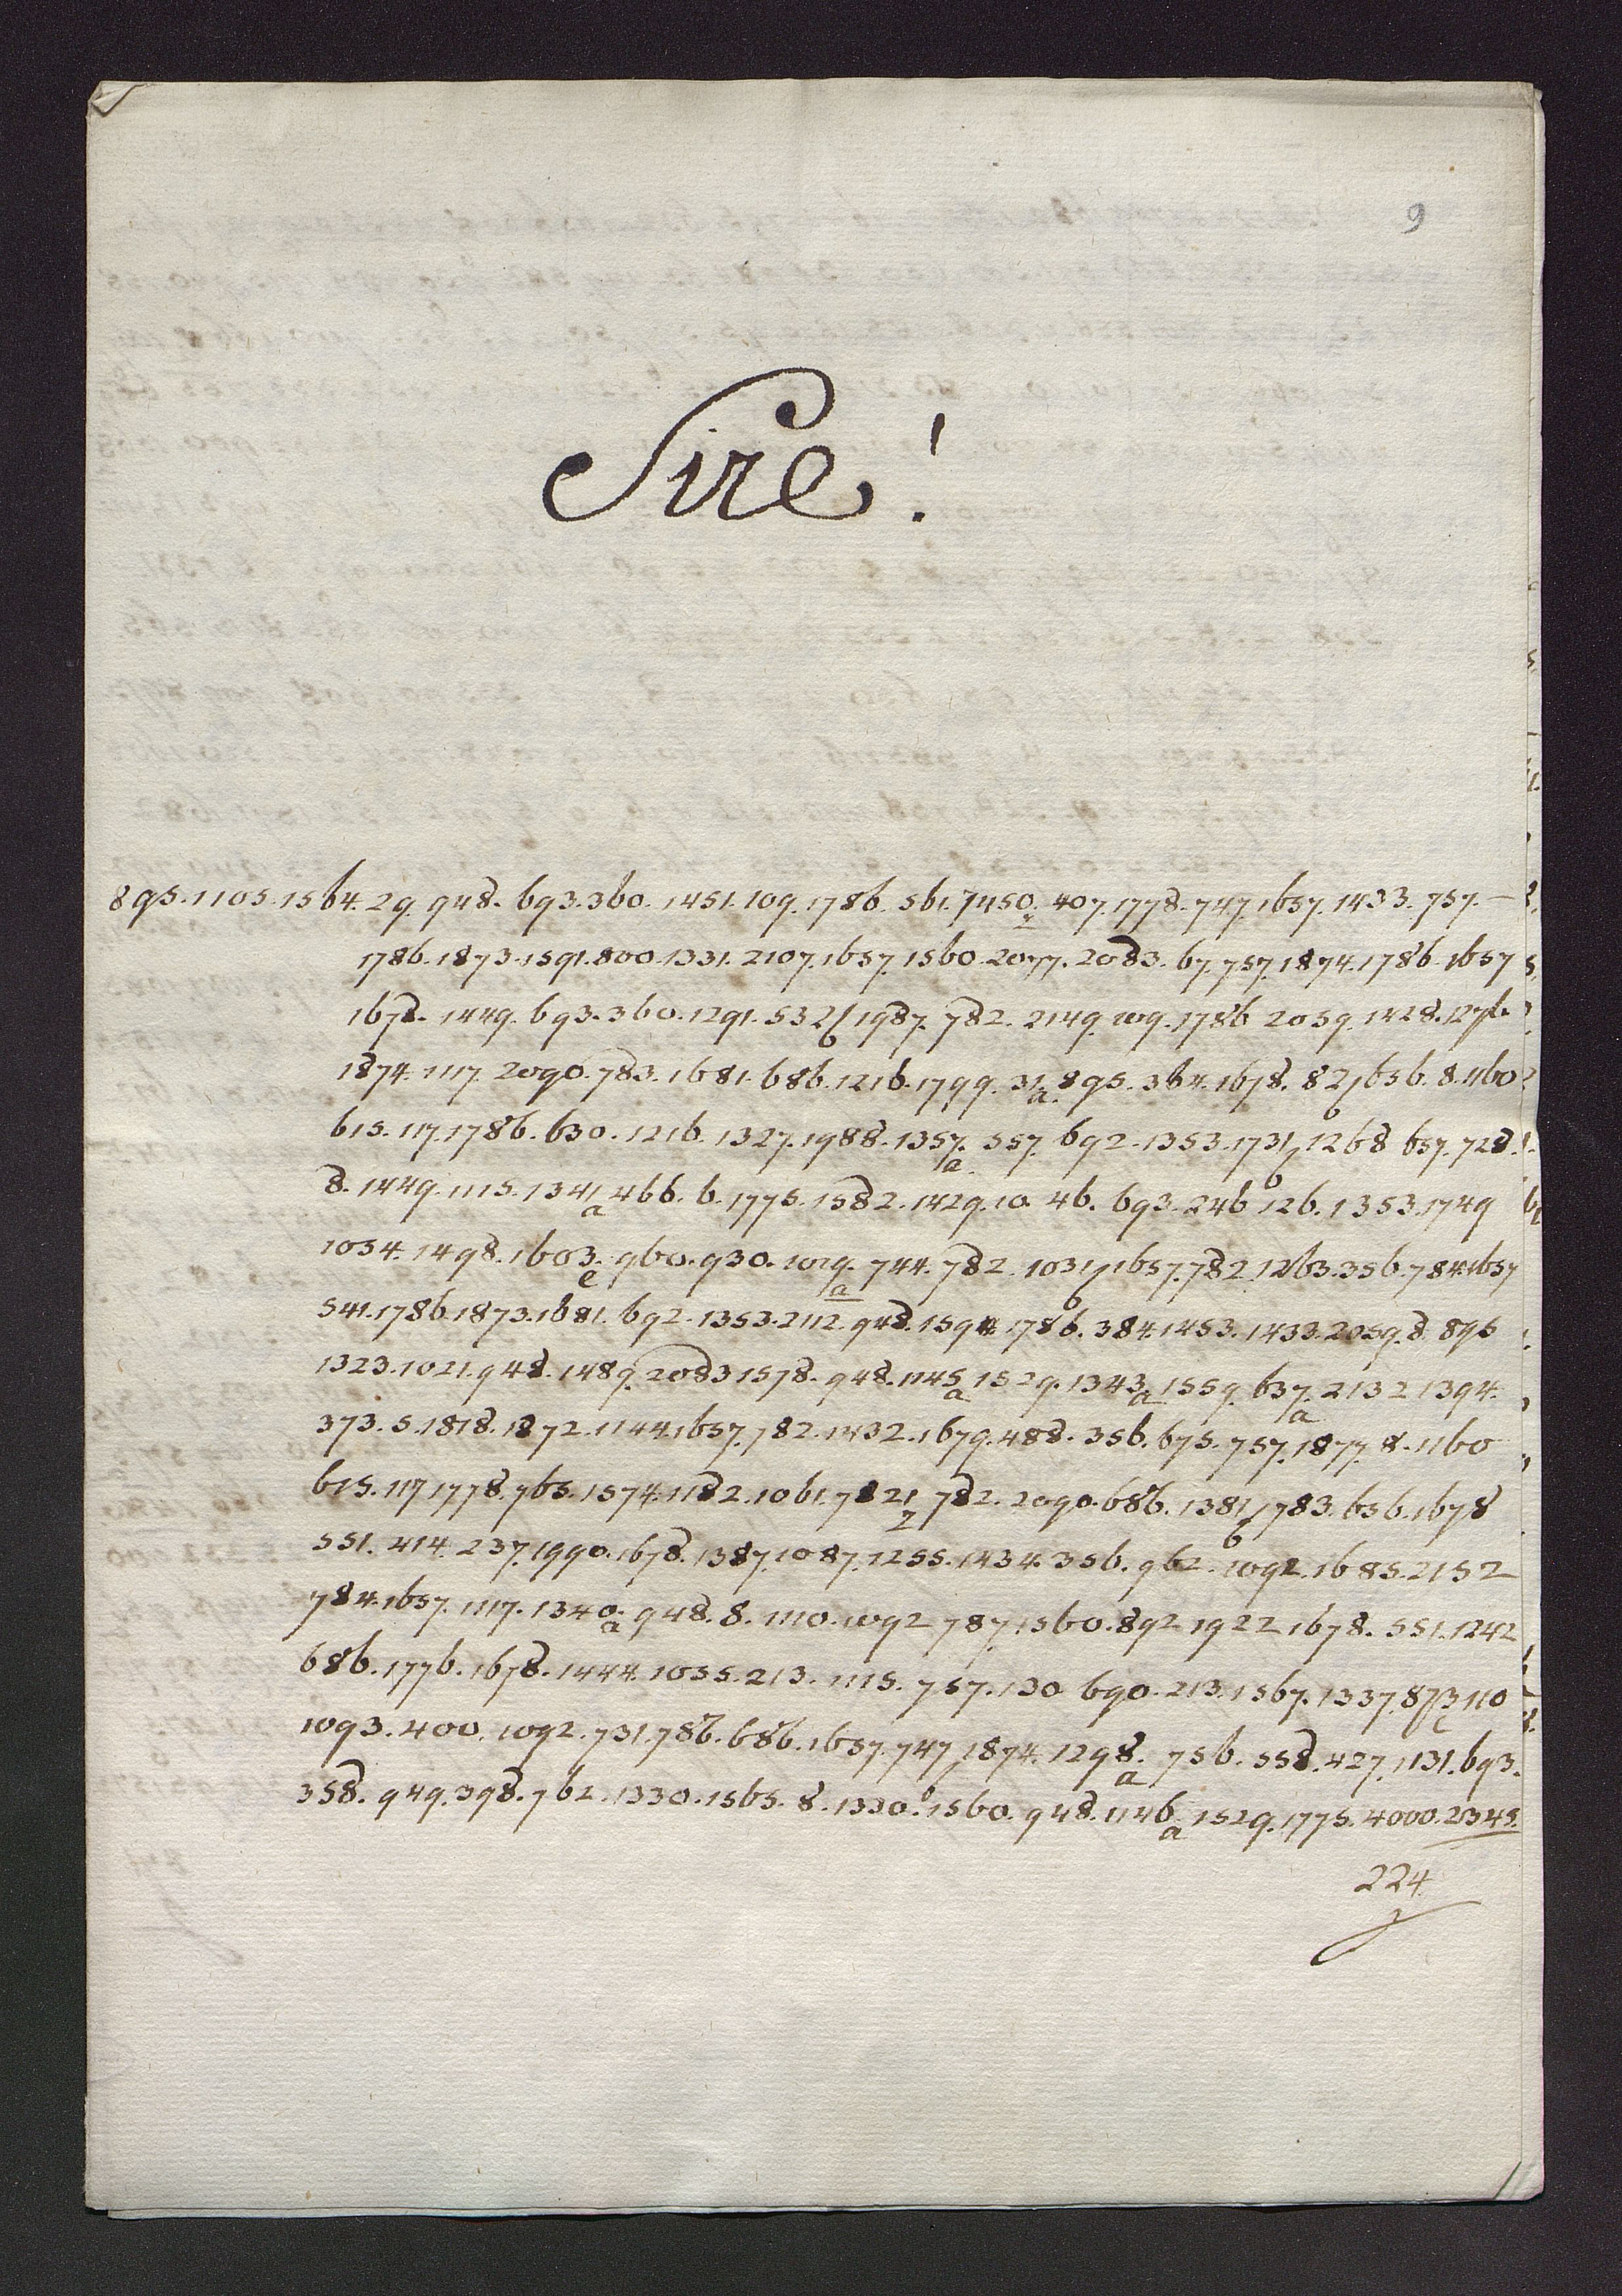 9
Sire!
895. 1105. 1564. 29. 948. 693. 360. 1451. 109. 1786. 561. 1450. 407. 1778. 747. 1657. 1433. 757. —
1786. 1873. 1591. 800. 1331. 2107. 1657. 1560. 2077. 2083. 67. 757. 1874. 1786. 1657
1678. 1449. 693. 360. 1291. 532 1987. 782. 2149. 109. 1786 2059. 1428. 1276.
1874. 1117. 2090. 783. 1681. 686. 1216. 1799. 31a. 895. 364. 1678. 82 656. 8. 1160
615. 117. 1786. 630. 1216. 1327. 1988. 1357a. 557. 692. 1353. 1731b 1268 657. 728.
8. 1449. 1115. 1341a 466. 6. 1775. 1582. 1429. 10. 46. 693. 246 126. 1353. 1749
1054. 1498. 1603e. 960. 930. 1019a. 744. 782. 1031b 1657. 782. 1263. 356. 784. 1657
541. 1786. 1873. 1681. 692. 1353. 2112. 948. 1594. 1786. 384. 1453. 1433. 2059. 8. 895
1323. 1021. 948. 1489. 2083 1578. 948. 1145a 1529. 1343a 1559. 637a. 2132 1394.
373. 5. 1818. 1872. 1144. 1657. 782. 1432. 1679. 488. 356. 675. 757. 1877. 8. 1160
615. 117 1778. 765. 1574. 1182. 1061. 7821 2 782. 2090. 686. 1381b 783. 656. 1678
551. 414. 237. 1990. 1678. 1387. 1087. 1255. 1434. 356. 962. 1092. 1685. 2152
784. 1657. 1117. 1340a. 948. 8. 1110. 1092 787. 1560. 892 1922 1678. 551. 1242
686. 1776. 1678. 1444. 1055. 213. 1115. 757. 130 690. 213. 1567. 1337. 873c 110
1093. 400. 1092. 731. 786. 686. 1657. 747, 1874. 1298a. 756. 558. 427. 1131. 693.
358. 949. 398. 762. 1330. 1565. 8. 1330. 1560. 948. 1146a 1529. 1775. 4000. 2345.
224